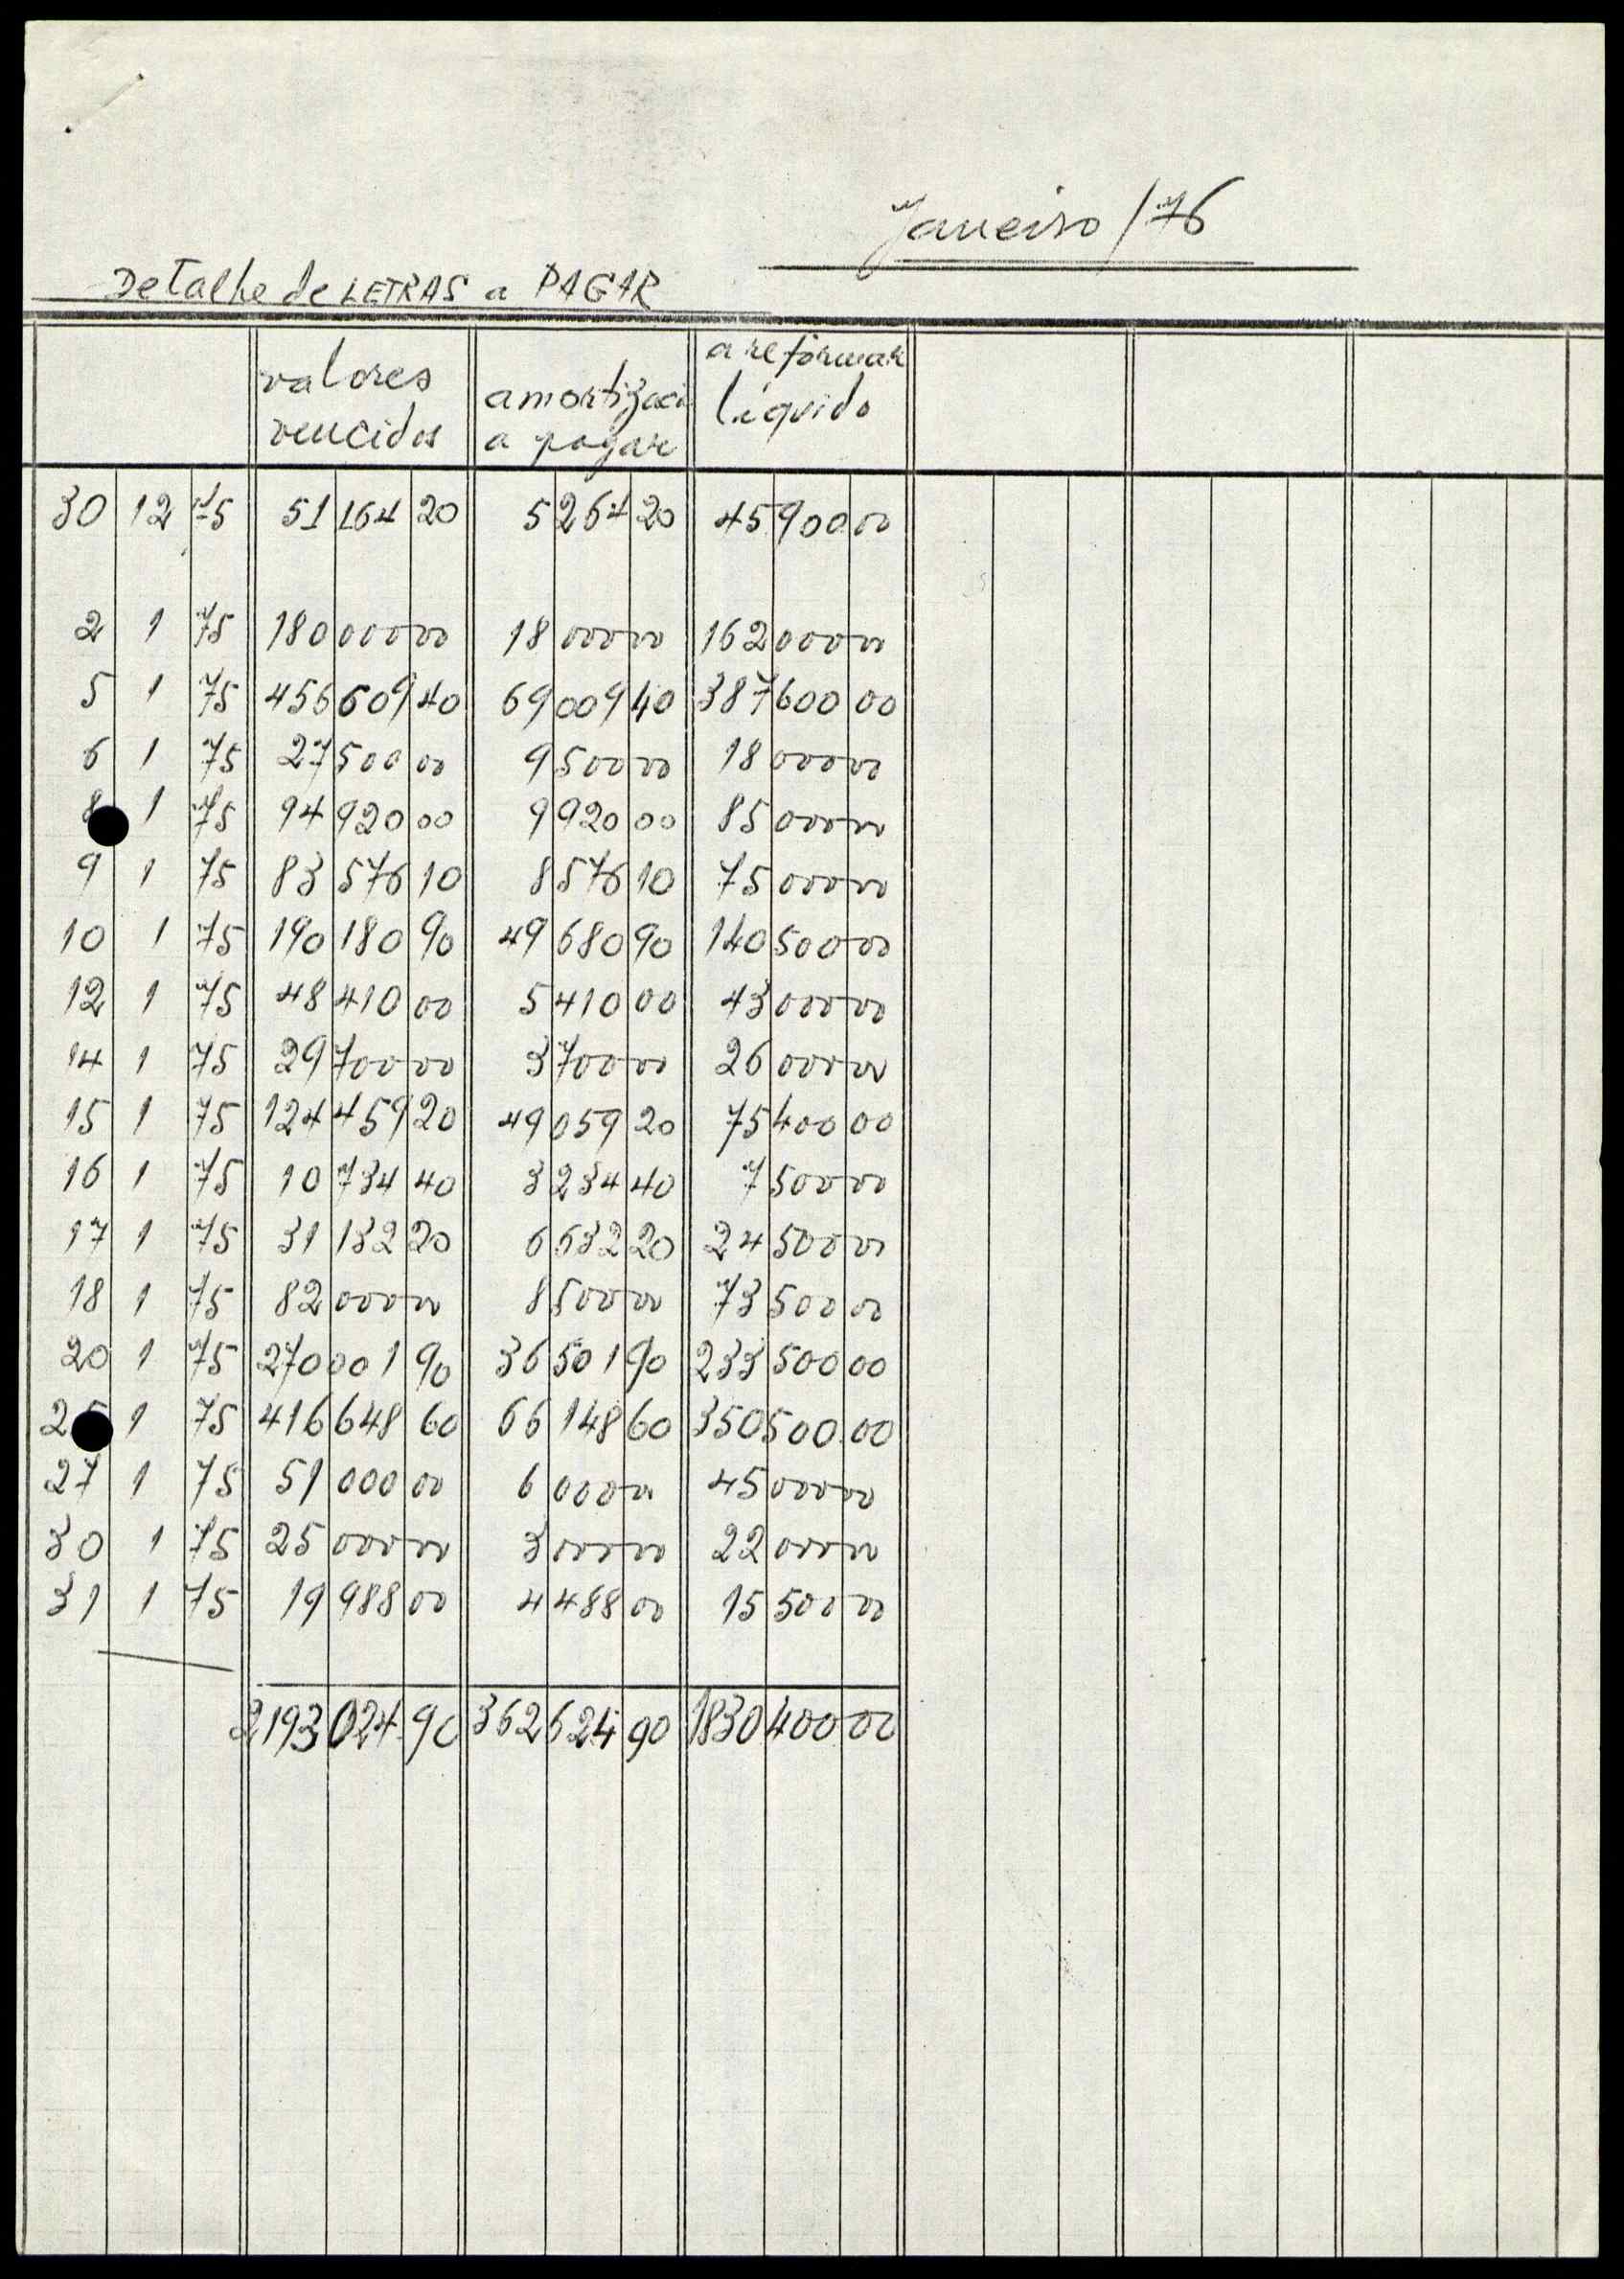 Janeiro / 76
Detalhe de LETRAS a PAGAR
valores vencidos amortizaci a pagar a reformar líquido
30 12 75 51 164 20 5 264 20 45 900 00
2 1 75 180 000 00 18 000 00 162 000 00
5 1 75 456 609 40 69 009 40 387 600 00
6 1 75 27 500 00 9 500 00 18 000 00
8 1 75 94 920 00 9 920 00 85 000 00
9 1 75 83 576 10 8 576 10 75 000 00
10 1 75 190 180 90 49 680 90 140 500 00
12 1 75 48 410 00 5 410 00 43 000 00
14 1 75 29 700 00 3 700 00 26 000 00
15 1 75 124 459 20 49 059 20 75 400 00
16 1 75 10 734 40 3 234 40 7 500 00
17 1 75 31 132 20 6 632 20 24 500 00
18 1 75 82 000 00 8 500 00 73 500 00
20 1 75 270 001 90 36 501 90 233 500 00
1 75 416 648 60 66 148 60 350 500 00
27 1 75 51 000 00 6 000 00 45 000 00
30 1 75 25 000 00 3 000 00 22 000 00
31 1 75 19 988 00 4 488 00 15 500 00
2193 024 90 362 624 90 1830 400 00